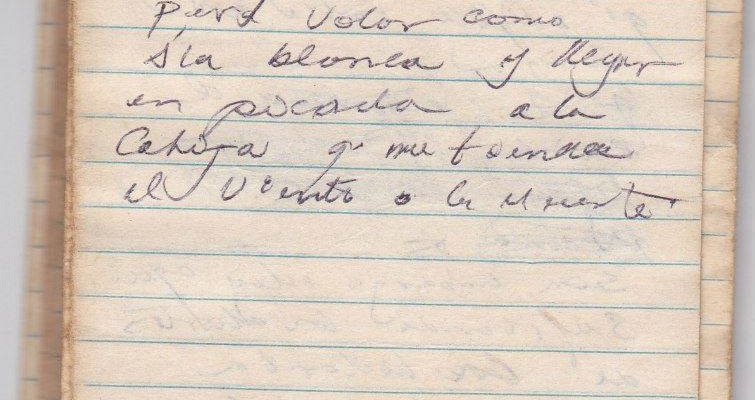 para volar como
ala blanca y llegar
en picada a la
Cobija q' me tienda
el Viento o la Muerte